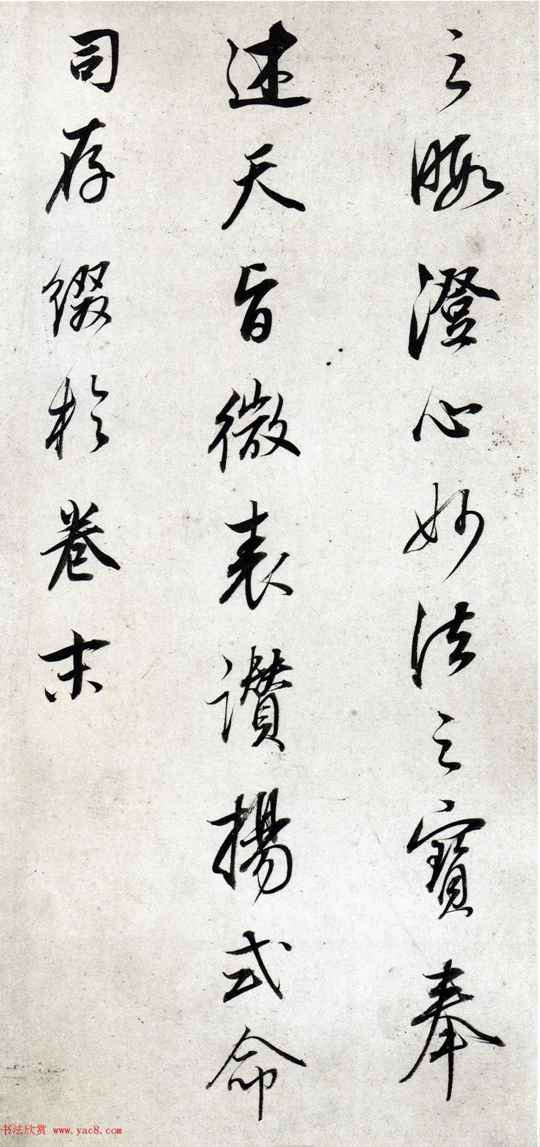 之暇澄心妙法之寶奉
述天旨微表讚揚式命
司存綴於卷末
书法欣赏 www.yac8.com